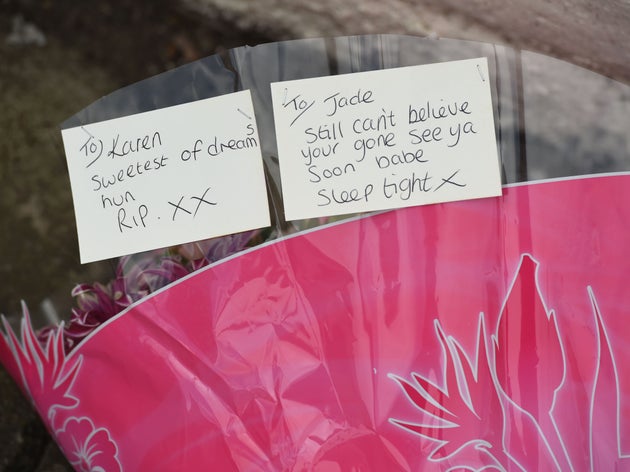 To) Karen
Sweetest of dreams
hun
RIP. XX
To) Jade
Still can't believe
your gone see ya
Soon babe
Sleep tight X